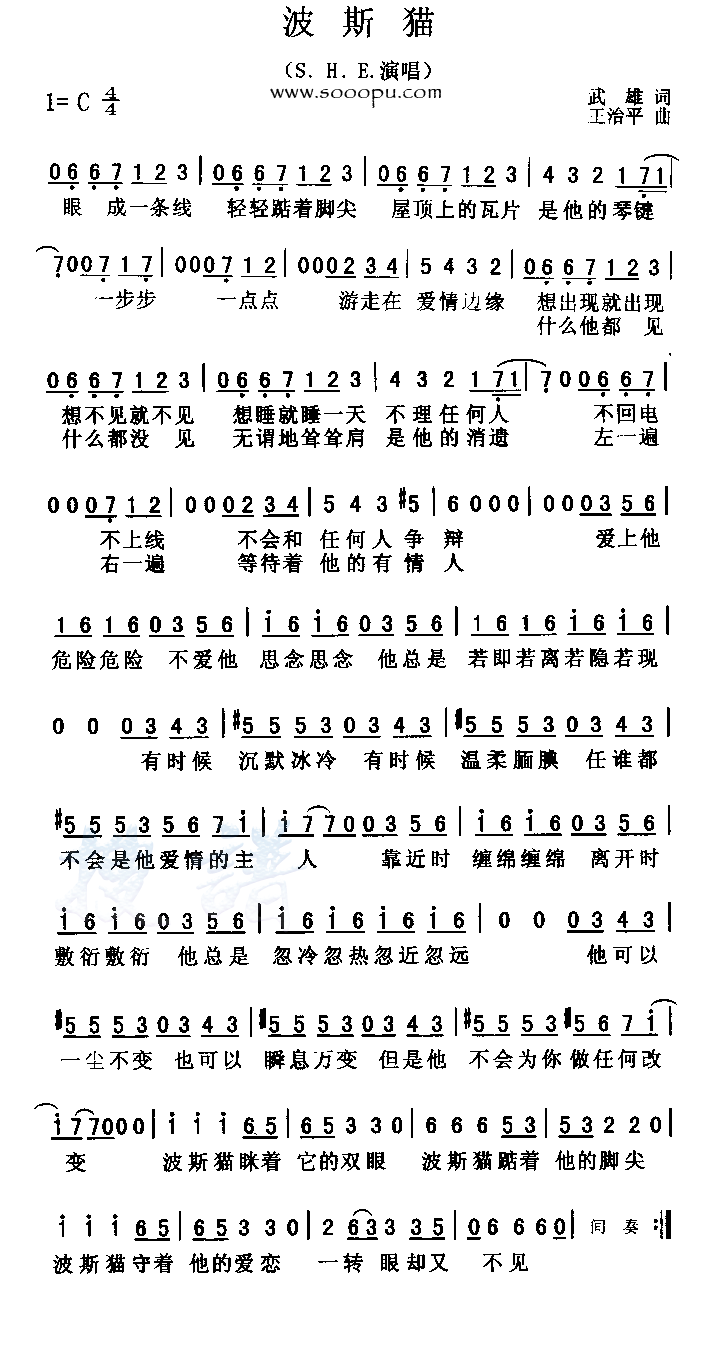 波斯猫
（S. H. E.演唱）
www.sooopu.com
1= C 4/4
武雄 词
王治平 曲
0 6 6 7 1 2 3 | 0 6 6 7 1 2 3 | 0 6 6 7 1 2 3 | 4 3 2 1 7 1 |
眼 成一条线 轻轻踮着脚尖 屋顶上的瓦片 是他的琴键
7 0 0 0 7 1 7 | 0 0 0 7 1 2 | 0 0 0 2 3 4 | 5 4 3 2 | 0 6 6 7 1 2 3 |
一步步 一点点 游走在 爱情边缘 想出现就出现
什么他都 见
0 6 6 7 1 2 3 | 0 6 6 7 1 2 3 | 4 3 2 1 7 1 | 7 0 0 6 6 7 |
想不见就不见 想睡就睡一天 不理任何人 不回电
什么都没 见 无谓地耸耸肩 是他的消遗 左一遍
0 0 0 7 1 2 | 0 0 0 2 3 4 | 5 4 3 #5 | 6 0 0 0 | 0 0 0 3 5 6 |
不上线 不会和 任何人争辩 爱上他
右一遍 等待着 他的有情人
1 6 1 6 0 3 5 6 | i 6 i 6 0 3 5 6 | 1 6 1 6 i 6 i 6 |
危险危险 不爱他 思念思念 他总是 若即若离若隐若现
0 0 0 3 4 3 | #5 5 5 3 0 3 4 3 | #5 5 5 3 0 3 4 3 |
有时候 沉默冰冷 有时候 温柔腼腆 任谁都
#5 5 5 3 5 6 7 i | i 7 7 0 0 3 5 6 | i 6 i 6 0 3 5 6 |
不会是他爱情的主 人 靠近时 缠绵缠绵 离开时
i 6 i 6 0 3 5 6 | i 6 i 6 i 6 i 6 | 0 0 0 3 4 3 |
敷衍敷衍 他总是 忽冷忽热忽近忽远 他可以
#5 5 5 3 0 3 4 3 | #5 5 5 3 0 3 4 3 | #5 5 5 3 #5 6 7 i |
一尘不变 也可以 瞬息万变 但是他 不会为你做任何改
i 7 7 0 0 0 | i i i 6 5 | 6 5 3 3 0 | 6 6 6 5 3 | 5 3 2 2 0 |
变 波斯猫眯着 它的双眼 波斯猫踮着 他的脚尖
i i i 6 5 | 6 5 3 3 0 | 2 6 3 3 3 5 | 0 6 6 6 0 | 间奏 :||
波斯猫守着 他的爱恋 一转 眼却又 不见